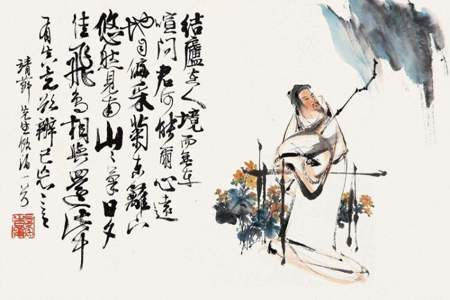 結廬在人境而無車
喧問君何能爾心遠
地自偏采菊东籬下
悠然見南山々氣日夕
佳飛鳥相與還此中
有真意欲辨已忘言
靖節先生